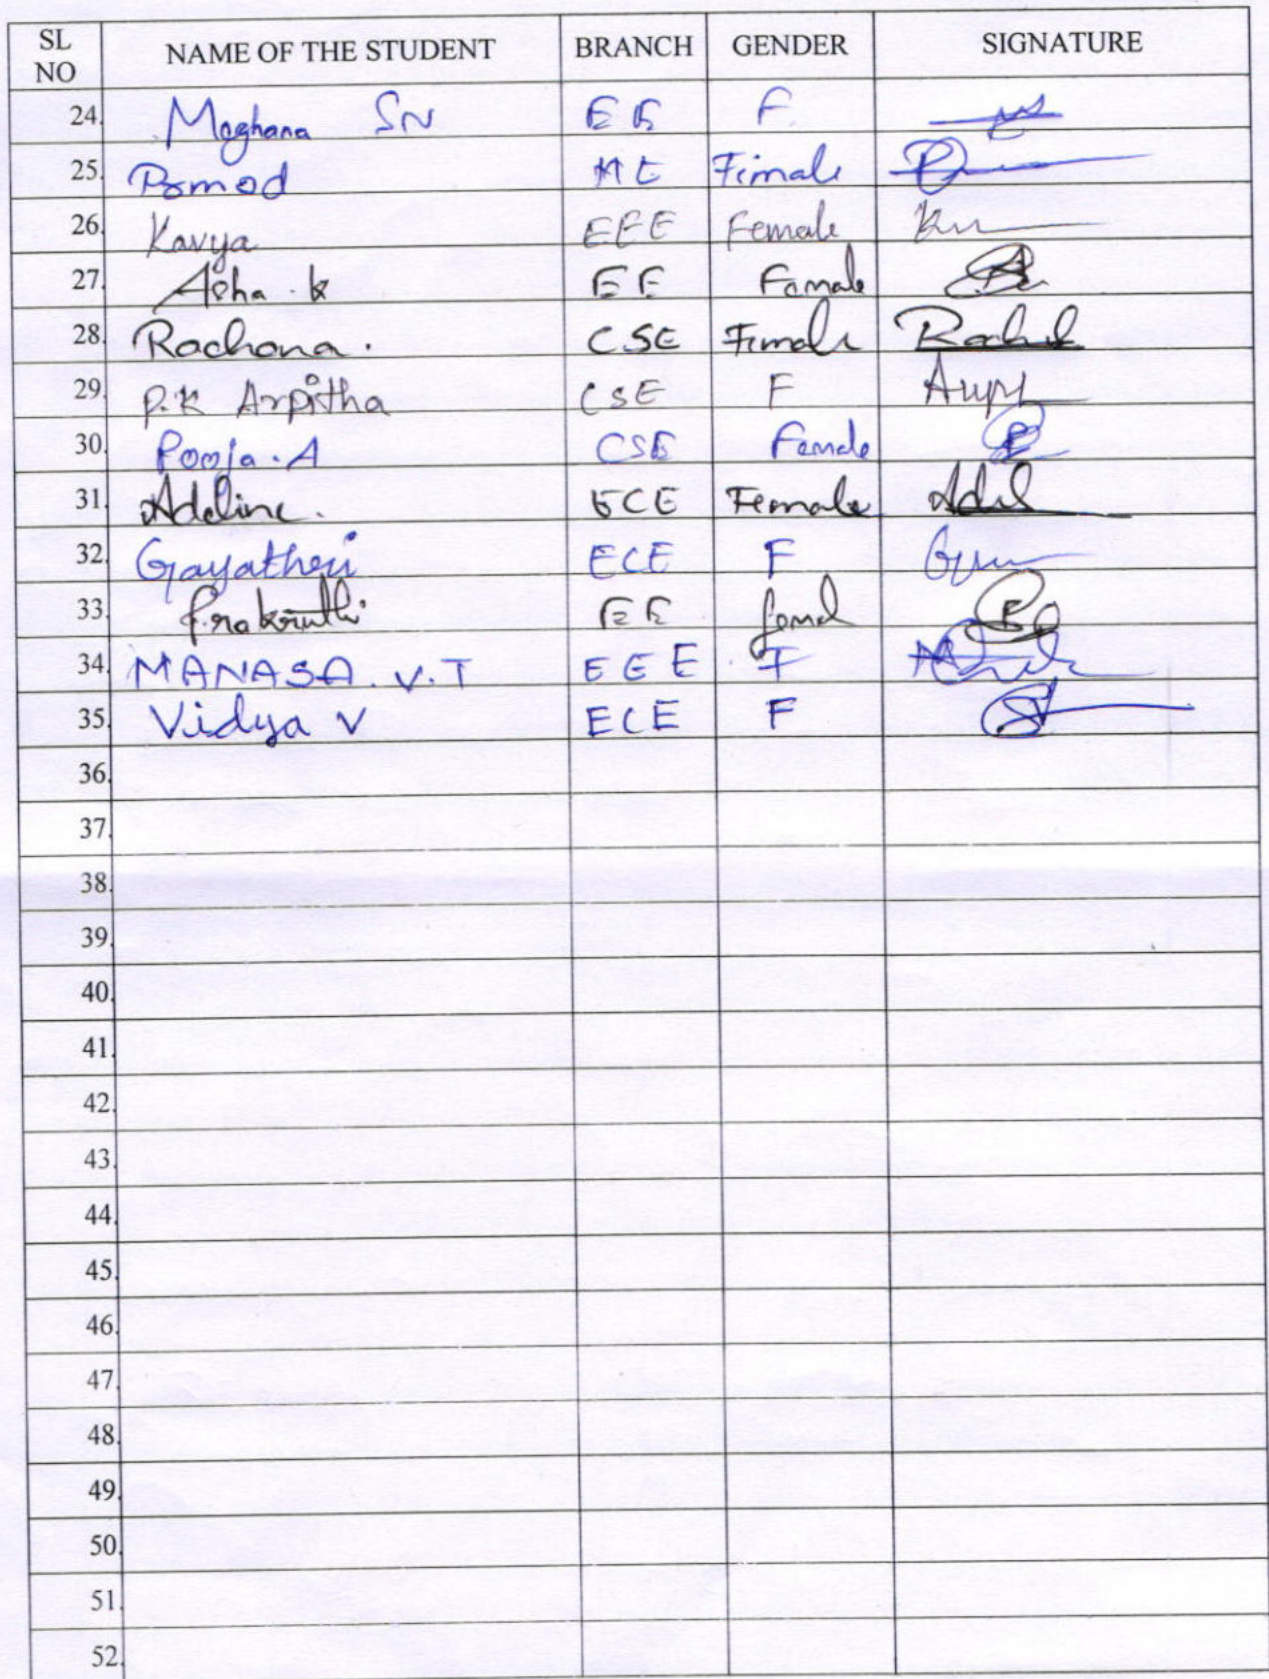 SL NO NAME OF THE STUDENT BRANCH GENDER SIGNATURE
24. Meghana SN EE F.
25. Pramod ME Fimale
26. Kavya EEE Female
27. Asha . k EE Female
28. Rachana. CSE Female
29. P.K Arpitha CSE F
30. Pooja.A CSE Female
31. Adeline. ECE Female
32. Gayathri ECE F
33. Prakruthi EE femal
34. MANASA. V.T EEE F
35. Vidya V ECE F
36.
37.
38.
39.
40.
41.
42.
43.
44.
45.
46.
47.
48.
49.
50.
51.
52.